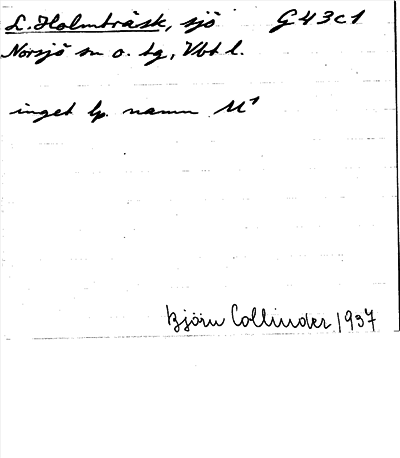 L. Holmträsk, sjö G 43 c 1
Norsjö sn o. tg, Vbt l.
inget lp. namn M¹
Björn Collinder 1937